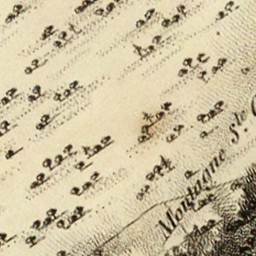 Montagne S.te C